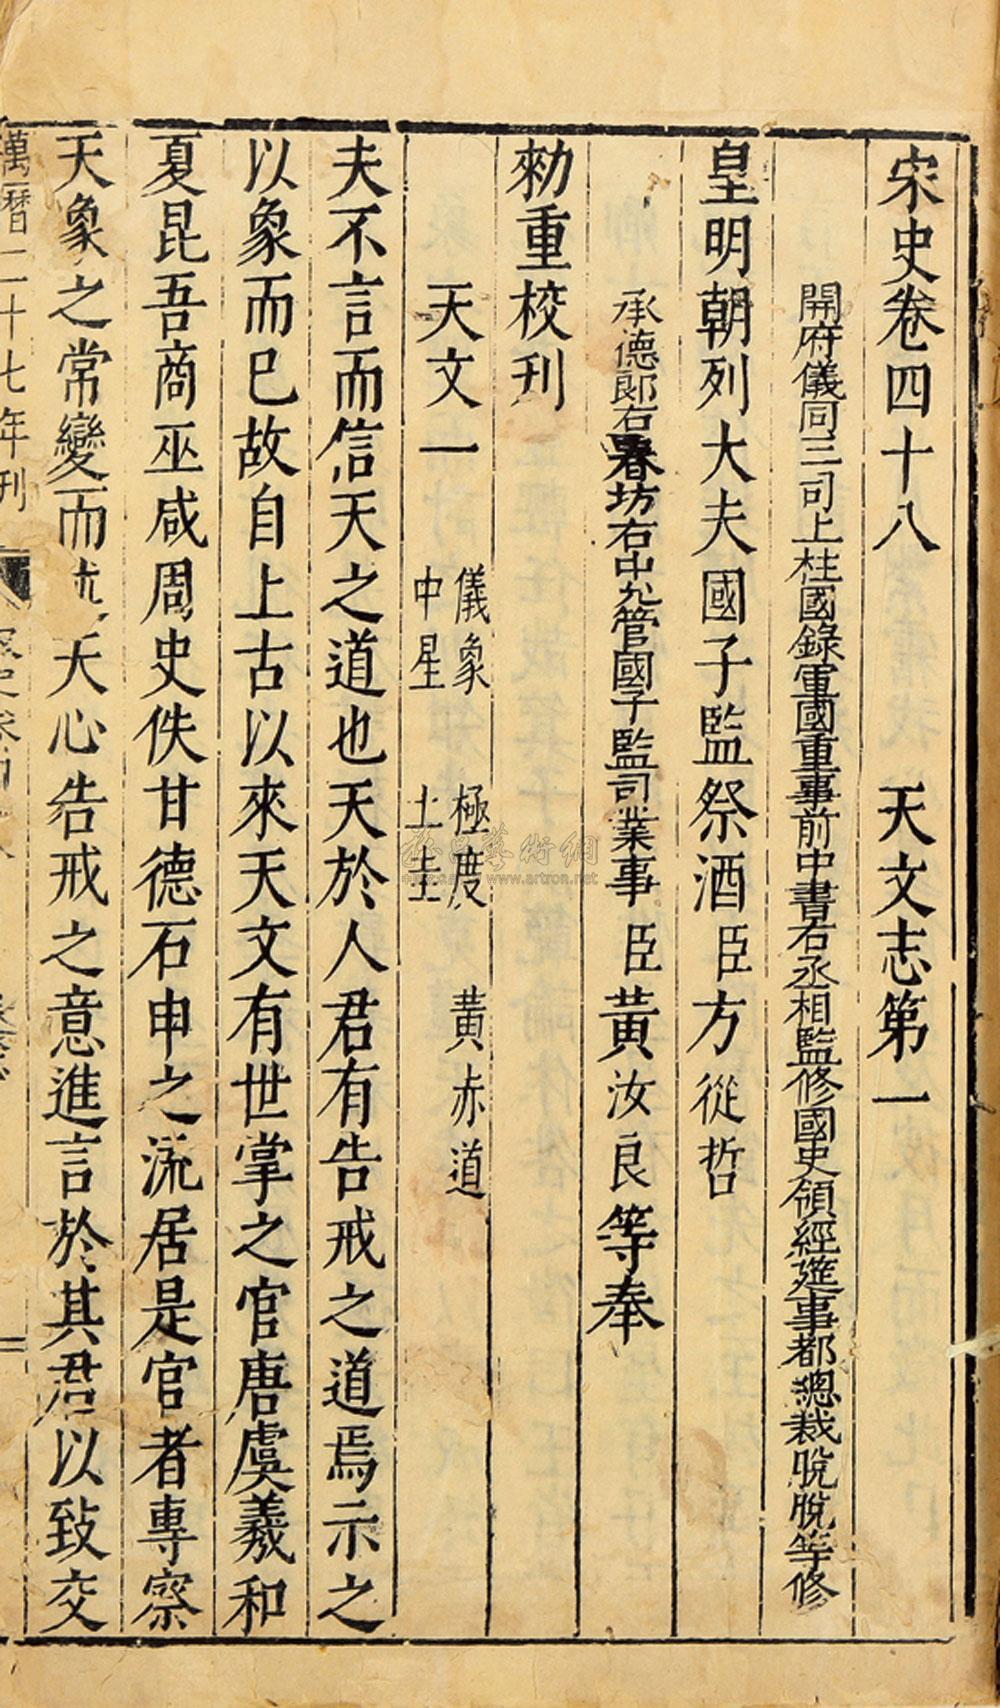 宋史卷四十八　天文志第一
開府儀同三司上柱國錄軍國重事前中書右丞相監修國史領經筵事都總裁脫脫等修
皇明朝列大夫國子監祭酒臣方從哲
承德郎右春坊右中允管國子監司業事臣黃汝良等奉
勑重校刊
天文一　儀象　極度　黃赤道
中星　土圭
夫不言而信天之道也天於人君有告戒之道焉示之
以象而已故自上古以來天文有世掌之官唐虞羲和
夏昆吾商巫咸周史佚甘德石申之流居是官者專察
天象之常變而述天心告戒之意進言於其君以致交
萬曆二十七年刊
雅昌藝術網
www.artron.net